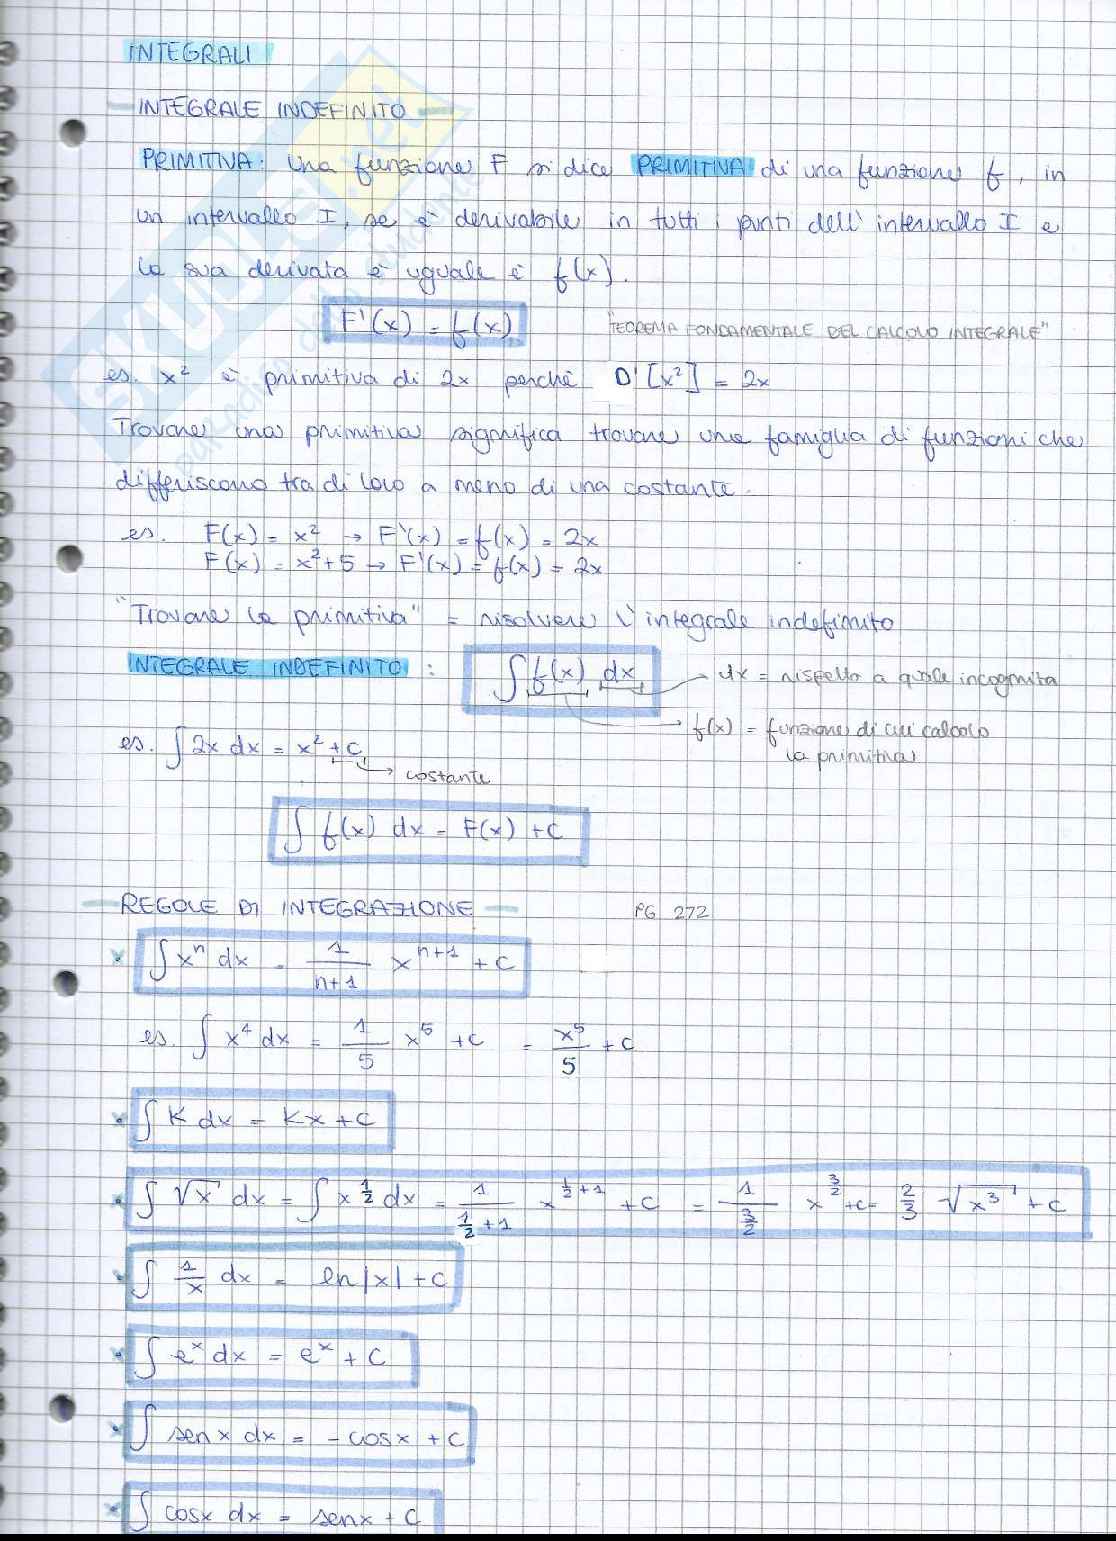 INTEGRALI
INTEGRALE INDEFINITO
PRIMITIVA: una funzione F si dice PRIMITIVA di una funzione f, in
un intervallo I, se è derivabile in tutti i punti dell'intervallo I e
la sua derivata è uguale è f(x).
F'(x) = f(x)
"TEOREMA FONDAMENTALE DEL CALCOLO INTEGRALE"
es. x² è primitiva di 2x perchè D'[x²] = 2x
Trovare una primitiva significa trovare una famiglia di funzioni che
differiscono tra di loro a meno di una costante.
es. F(x) = x² → F'(x) = f(x) = 2x
F(x) = x²+5 → F'(x) = f(x) = 2x
"Trovare la primitiva" = risolvere l'integrale indefinito
INTEGRALE INDEFINITO : ∫ f(x) dx → dx = rispetto a quale incognita
→ f(x) = funzione di cui calcolo
la primitiva
es. ∫ 2x dx = x² + c
→ costante
∫ f(x) dx = F(x) + c
REGOLE DI INTEGRAZIONE PG 272
∫ xⁿ dx = 1/(n+1) x^(n+1) + c
es. ∫ x⁴ dx = 1/5 x⁵ + c = x⁵/5 + c
∫ K dx = Kx + c
∫ √x dx = ∫ x^(1/2) dx = 1/(1/2+1) x^(1/2+1) + c = 1/(3/2) x^(3/2) + c = 2/3 √x³ + c
∫ 1/x dx = ln|x| + c
∫ eˣ dx = eˣ + c
∫ senx dx = -cosx + c
∫ cosx dx = senx + c
SKUOLA.net